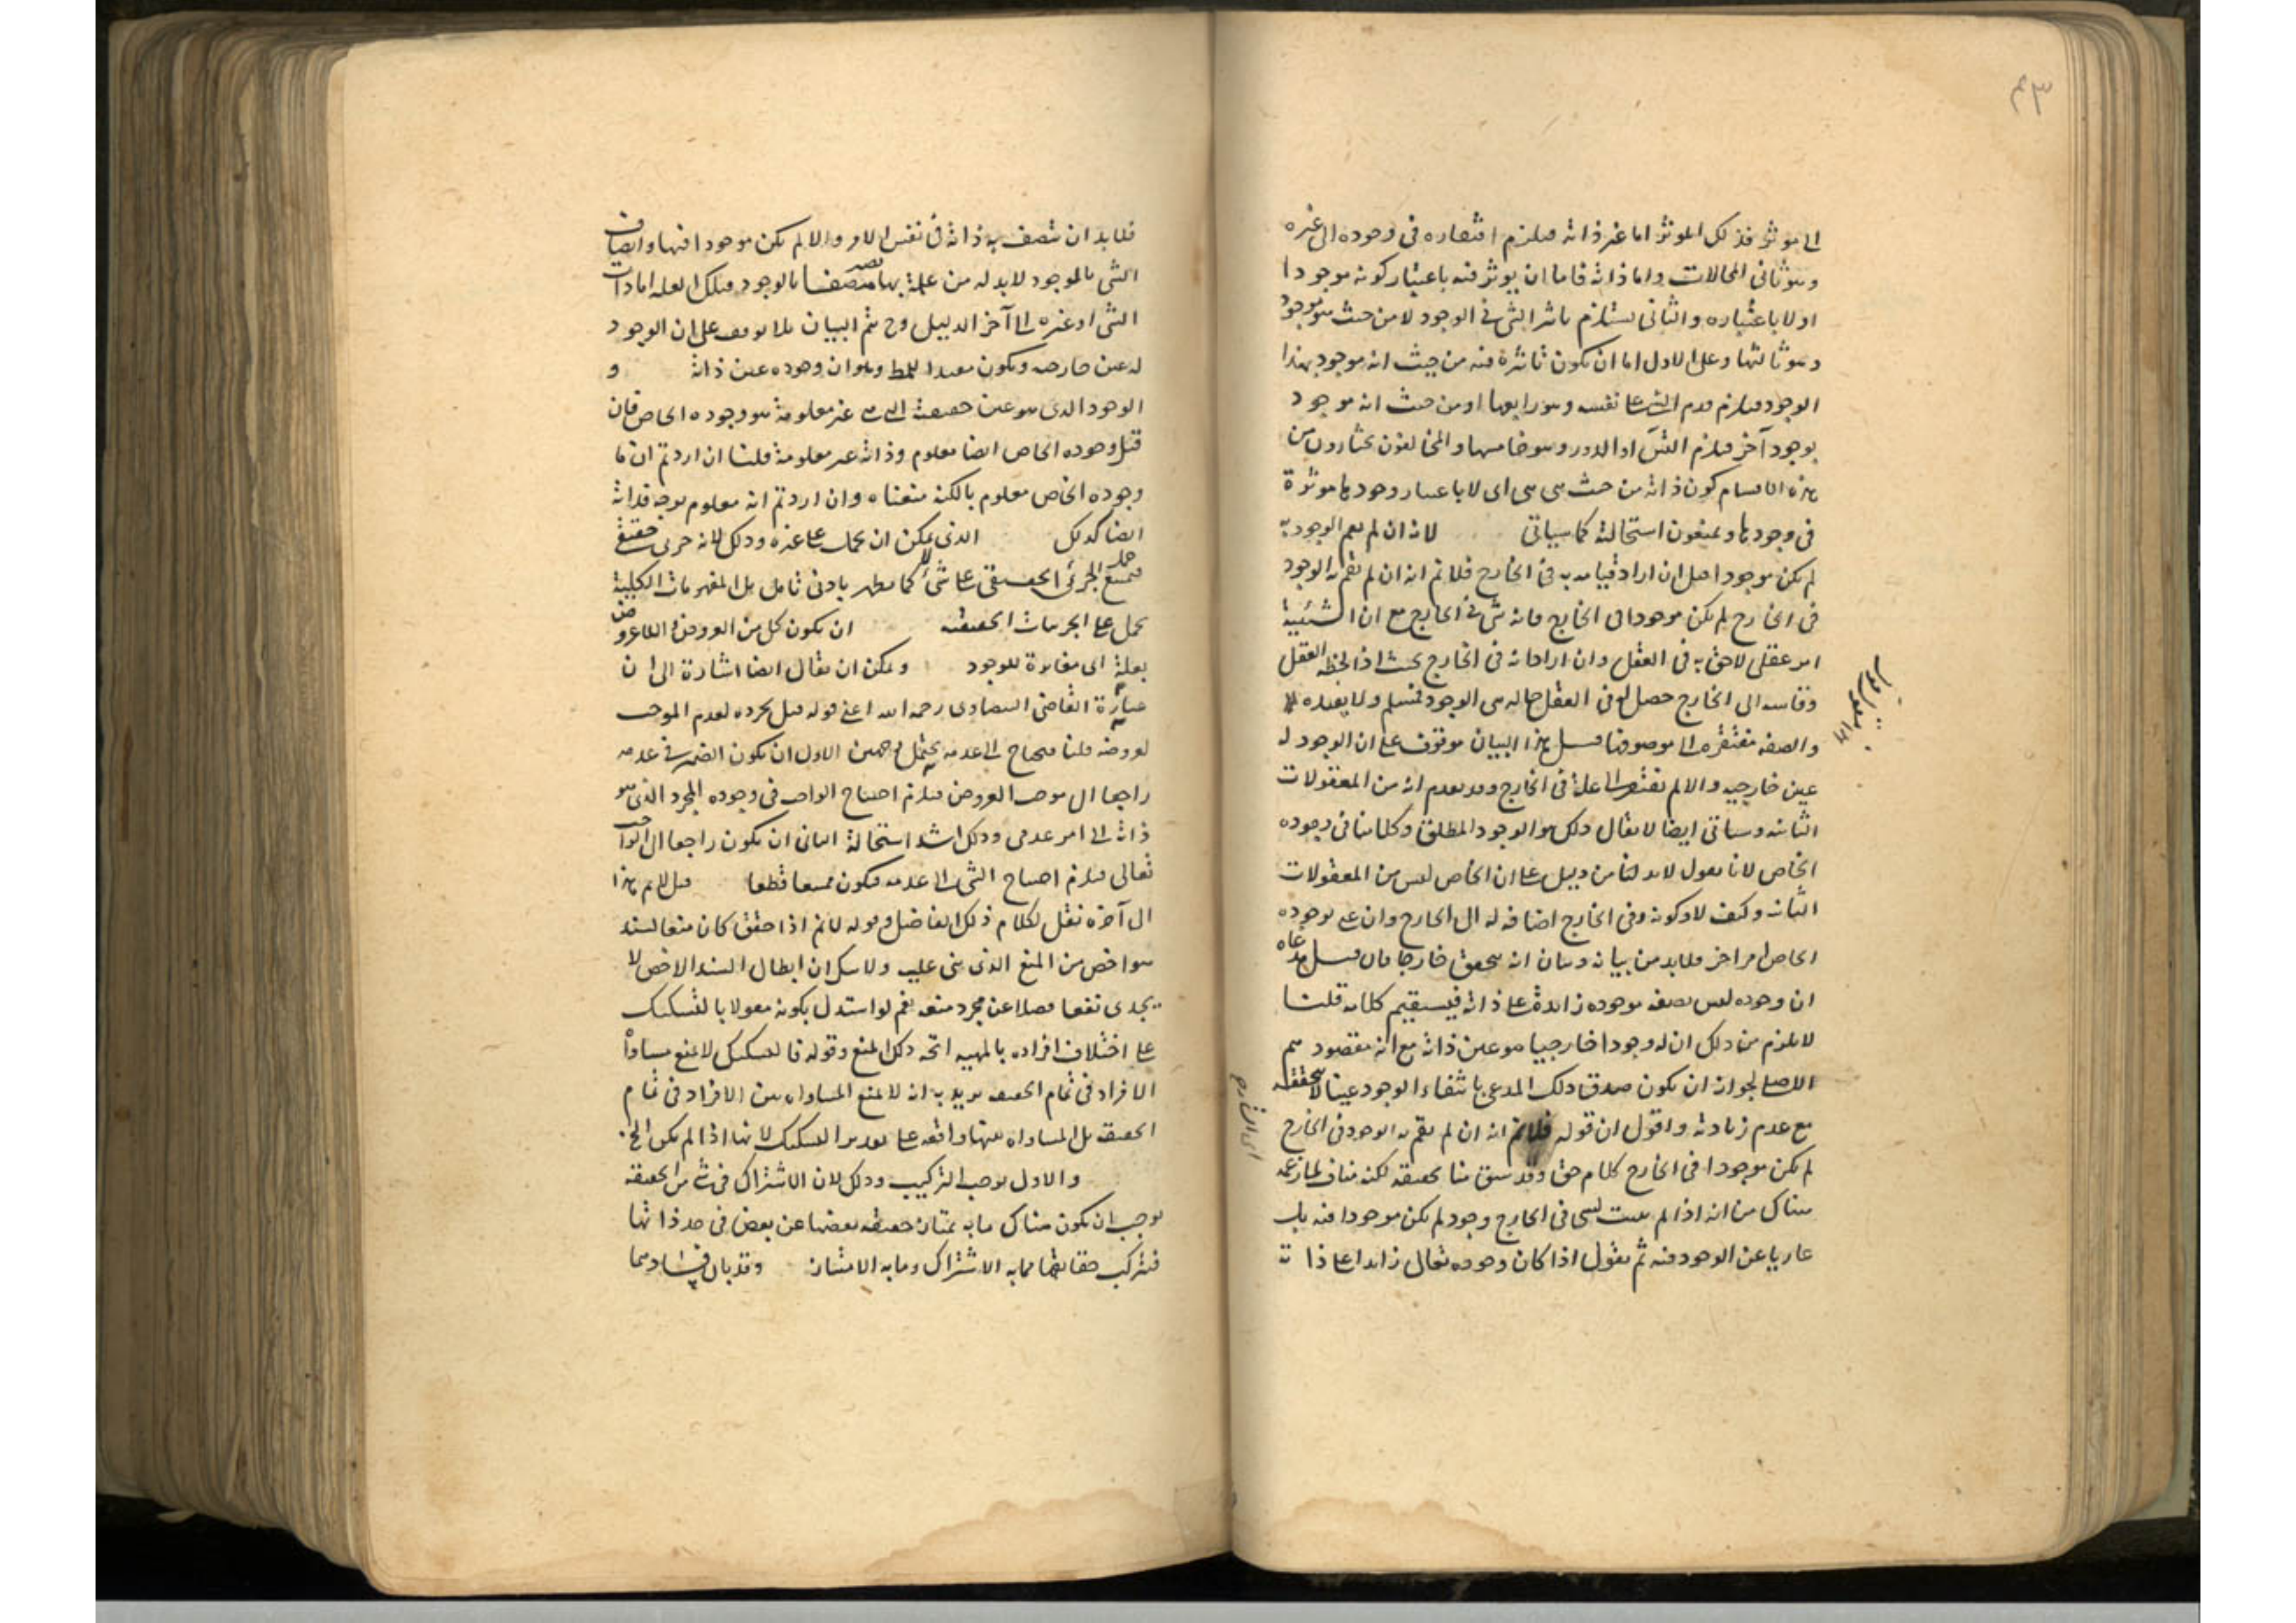 ٤٣
الى موثر فذلك الموثر اما غير ذاته فيلزم افتقاره فى وجوده الى غيره
وهو ثانى المحالات واما ذاته فاما ان يوثر فيه باعتبار كونه موجودا
اولا باعتباره والثانى يستلزم تاثير الشى فى الوجود لا من حيث هو موجود
وهو ثالثها وعلى الاول اما ان يكون تاثيره فيه من حيث انه موجود بهذا
الوجود فيلزم تقدم الشى على نفسه وهو رابعها او من حيث انه موجود
بوجود آخر فيلزم التس او الدور وهو خامسها والمخالفون يختارون من
هذه الاقسام كون ذاته من حيث هى هى اى لا باعتبار وجودها موثرة
فى وجودها ويمنعون استحالته كما سياتى لانه ان لم يقم الوجود به
لم يكن موجودا قيل ان اراد قيامه به فى الخارج فلانم انه ان لم يقم به الوجود
فى الخارج لم يكن موجودا فى الخارج فانه شى فى الخارج مع ان الشيئية
امر عقلى لاحق به فى العقل وان اراد انه فى الخارج بحيث اذا لاحظه العقل
وقاسه الى الخارج حصل له فى العقل حاله هى الوجود فمسلم ولا يفيده
والصفه مفتقره الى موصوفها قيل هذا البيان موقوف على ان الوجود له
عين خارجيه والا لم يفتقر الى علة فى الخارج وقد تقدم انه من المعقولات
الثانيه وسياتى ايضا لا يقال ذلك هو الوجود المطلق وكلامنا فى وجوده
الخاص لانا نقول لابد لنا من دليل على ان الخاص ليس من المعقولات
الثانيه وكيف لا وكونه فى الخارج اضافه له الى الخارج وان عنى بوجوده
الخاص امرا آخر فلابد من بيانه وبيان انه متحقق خارجا فان قيل مدعاه
ان وجوده ليس بصفه موجوده زائدة على ذاته فيستقيم كلامه قلنا
لا يلزم من ذلك ان له وجودا خارجيا هو عين ذاته مع انه مقصودهم
الاصلى لجواز ان يكون صدق ذلك المدعى بانتفاء الوجود عينا لا بتحققه
مع عدم زيادته واقول ان قوله فلانم انه ان لم يقم به الوجود فى الخارج
لم يكن موجودا فى الخارج كلام حق وقد سبق منا تحقيقه لكنه مناف لما زعمه
هناك من انه اذا لم يثبت لشى فى الخارج وجود لم يكن موجودا فيه بل
عاريا عن الوجود فيه ثم نقول اذا كان وجوده تعالى زايدا على ذاته
فلابد ان تتصف به ذاته فى نفس الامر والا لم يكن موجودا فيها واتصاف
الشى بالموجود لابد له من علة بها متصفا بالوجود فتلك العله اما ذات
الشى او غيره الى آخر الدليل وح يتم البيان بلا توقف على ان الوجود
له عين خارجيه ويكون مفيدا للمط وهو ان وجوده عين ذاته و
الوجود الذى هو عين حقيقته التى هى غير معلومة هو وجوده الخاص فان
قيل وجوده الخاص ايضا معلوم وذاته غير معلومة قلنا ان اردتم ان
وجوده الخاص معلوم بالكنه منعناه وان اردتم انه معلوم بوجه فذاته
ايضا كذلك الذى يمكن ان يحمل على غيره وذلك لانه جزئى حقيقى
فيمتنع حمل الجزئى الحقيقى على شئ كما يظهر بادنى تامل بل المفهومات الكلية
تحمل على الجزئيات الحقيقيه ان يكون كل من العروض واللاعروض
بعلة اى مغايرة للوجود ويمكن ان يقال ايضا اشارة الى ان
عبارة القاضى البيضاوى رحمه الله اعنى قوله قيل تجرده لعدم الموجب
لعروضه قلنا فيحتاج الى عدمه يحتمل وجهين الاول ان يكون الضمير فى عدمه
راجعا الى موجب العروض فيلزم احتياج الواجب فى وجوده المجرد الذى هو
ذاته الى امر عدمى وذلك اشد استحالة الثانى ان يكون راجعا الى الواجب
تعالى فيلزم احتياج الشى الى عدمه فيكون ممتنعا قطعا قيل لانم هذا
الى آخره نقل لكلام ذلك الفاضل وقوله لانم اذا حقق كان منعا لسند
هو اخص من المنع الذى بنى عليه ولا شك ان ابطال السند الاخص لا
يجدى نفعا فضلا عن مجرد منعه نعم لو استدل بكونه مقولا بالتشكيك
على اختلاف افراده بالمهيه اتجه ذلك المنع وقوله فالتشكيك لا يمنع مساواة
الافراد فى تمام الحقيقه يريد به انه لا يمنع المساواه بين الافراد فى تمام
الحقيقه بل المساواه بينها واقعه على تقدير التشكيك لانها اذا لم يكن الخ
والاول يوجب التركيب وذلك لان الاشتراك فى شى من الحقيقه
يوجب ان يكون هناك ما به يمتاز حقيقه بعضها عن بعض فى حد ذاتها
فيتركب حقايقها مما به الاشتراك وما به الامتياز وقد بان فسادهما